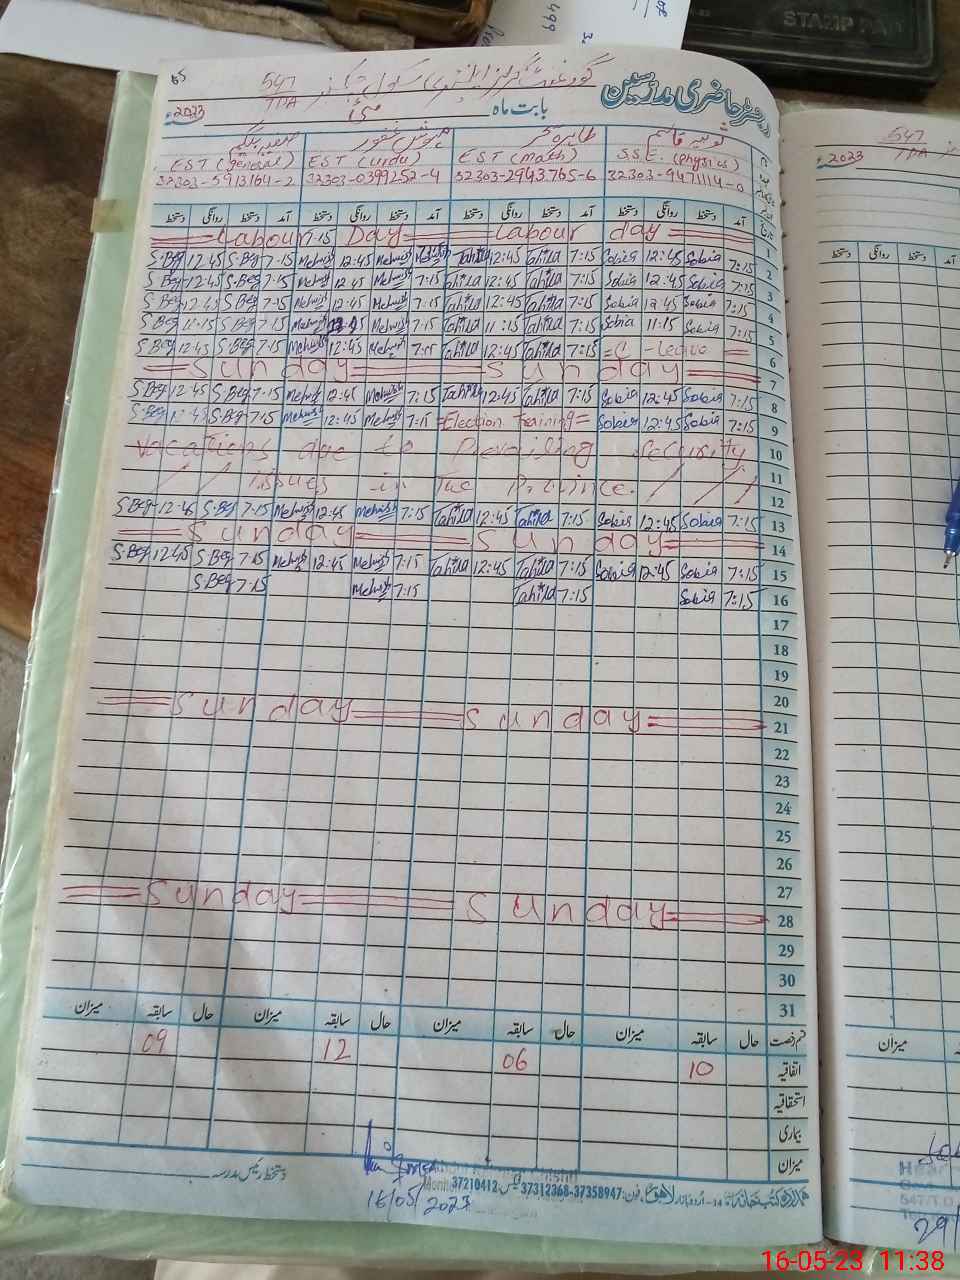 رجسٹر حاضری مدرسین
گورنمنٹ گرلز ایلیمنٹری سکول چک نمبر 547/TDA
بابت ماہ مئی 2023
ثوبیہ قاسم
طاہرہ
مہوش غفور
صغیر بیگم
S.S.E. (physics)
EST (math)
EST (urdu)
EST (general)
32303-9471114-0
32303-2943765-6
32303-0399252-4
32303-5913164-2
آمد دستخط روانگی دستخط آمد دستخط روانگی دستخط آمد دستخط روانگی دستخط آمد دستخط روانگی دستخط
Labour Day Labour day 1
S.Beg 12:45 S.Beg 7:15 Mehwish 12:45 Mehwish Tahira 12:45 Tahira 7:15 Sobia 12:45 Sobia 7:15 2
S.Beg 12:45 S.Beg 7:15 Mehwish 12:45 Mehwish 7:15 Tahira 12:45 Tahira 7:15 Sobia 12:45 Sobia 7:15 3
S.Beg 12:45 S.Beg 7:15 Mehwish 12:45 Mehwish 7:15 Tahira 12:45 Tahira 7:15 Sobia 12:45 Sobia 7:15 4
S.Beg 11:15 S.Beg 7:15 Mehwish Mehwish 7:15 Tahira 11:15 Tahira 7:15 Sobia 11:15 Sobia 7:15 5
S.Beg 12:45 S.Beg 7:15 Mehwish 12:45 Mehwish 7:15 Tahira 12:45 Tahira 7:15 = C-leave = 6
Sunday Sunday 7
S.Beg 12:45 S.Beg 7:15 Mehwish 12:45 Mehwish 7:15 Tahira 12:45 Tahira 7:15 Sobia 12:45 Sobia 7:15 8
S.Beg 12:45 S.Beg 7:15 Mehwish 12:45 Mehwish 7:15 =Election training= Sobia 12:45 Sobia 7:15 9
Vacations due to Prevailing Security 10
// issues in The Province. / // 11
12
S.Beg 12:45 S.Beg 7:15 Mehwish 12:45 Mehwish 7:15 Tahira 12:45 Tahira 7:15 Sobia 12:45 Sobia 7:15 13
Sunday Sunday 14
S.Beg 12:45 S.Beg 7:15 Mehwish 12:45 Mehwish 7:15 Tahira 12:45 Tahira 7:15 Sobia 12:45 Sobia 7:15 15
S.Beg 7:15 Mehwish 7:15 Tahira 7:15 Sobia 7:15 16
17
18
19
20
Sunday Sunday 21
22
23
24
25
26
27
Sunday Sunday 28
29
30
31
قسم رخصت حال سابقہ میزان حال سابقہ میزان حال سابقہ میزان حال سابقہ میزان
اتفاقیہ 10 06 12 09
استحقاقیہ
بیماری
میزان
دستخط رئیس مدرسہ
16/05/2023
اردو بازار لاہور فون: 37358947-37312368 فیکس: 37210412
STAMP PAD
499
547/TDA
2023
آمد دستخط روانگی دستخط
میزان
Head
547/T.D
29/
16-05-23 11:38